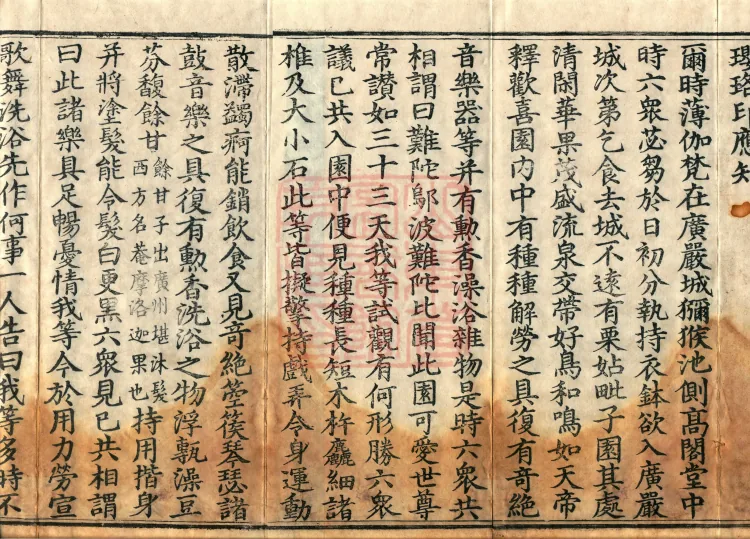 瓔珞印應知
爾時薄伽梵在廣嚴城獼猴池側高閣堂中
時六衆苾芻於日初分執持衣鉢欲入廣嚴
城次第乞食去城不遠有栗姑毗子園其處
清閑華果茂盛流泉交帶好鳥和鳴如天帝
釋歡喜園內中有種種解勞之具復有奇絶
音樂器等并有熏香澡浴雜物是時六衆共
相謂曰難陀鄔波難陀比聞此園可愛世尊
常讃如三十三天我等試觀有何形勝六衆
議已共入園中便見種種長短木杵麤細諸
椎及大小石此等皆擬擎持戲弄令身運動
散滯蠲痾能銷飲食又見奇絶箜篌琴瑟諸
鼓音樂之具復有熏香洗浴之物浮甎澡豆
芬馥餘甘餘甘子出廣州堪沐髮西方名菴摩洛迦果也持用揩身
并將塗髮能令髮白更黑六衆見已共相謂
曰此諸樂具足暢憂情我等今於用力勞宣
歌舞洗浴先作何事一人告曰我等多時不